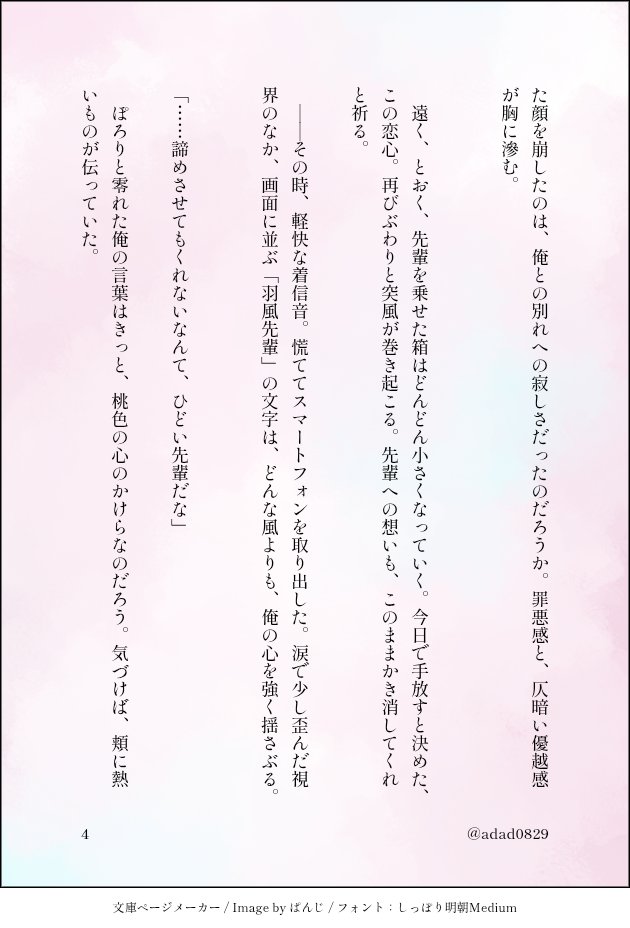 た顔を崩したのは、俺との別れへの寂しさだったのだろうか。罪悪感と、仄暗い優越感
が胸に滲む。
遠く、とおく、先輩を乗せた箱はどんどん小さくなっていく。今日で手放すと決めた、
この恋心。再びぶわりと突風が巻き起こる。先輩への想いも、このままかき消してくれ
と祈る。
――その時、軽快な着信音。慌ててスマートフォンを取り出した。涙で少し歪んだ視
界のなか、画面に並ぶ「羽風先輩」の文字は、どんな風よりも、俺の心を強く揺さぶる。
「……諦めさせてもくれないなんて、ひどい先輩だな」
ぽろりと零れた俺の言葉はきっと、桃色の心のかけらなのだろう。気づけば、頬に熱
いものが伝っていた。
4
@adad0829
文庫ページメーカー / Image by ぱんじ / フォント：しっぽり明朝Medium